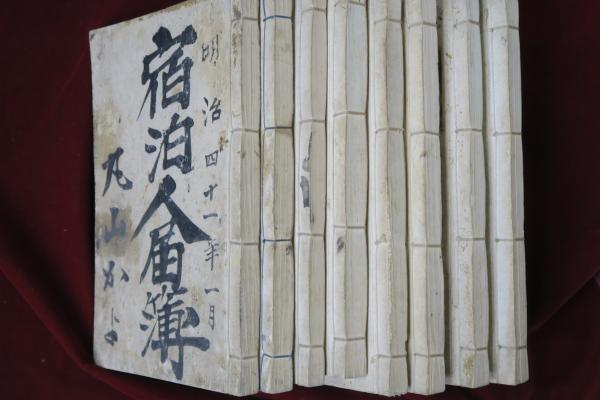 明治四十一年一月
宿泊人届簿
丸山かよ